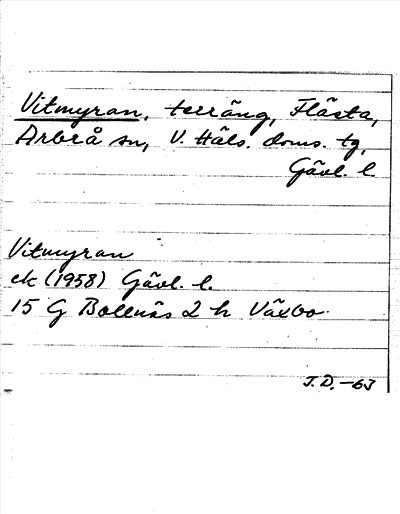 Vitmyran, terräng, Flästa,
Arbrå sn, V. Häls. doms. tg,
Gävl. l.
Vitmyran
ek (1958) Gävl. l.
15 G Bollnäs 2 h Växbo
J.D.-63